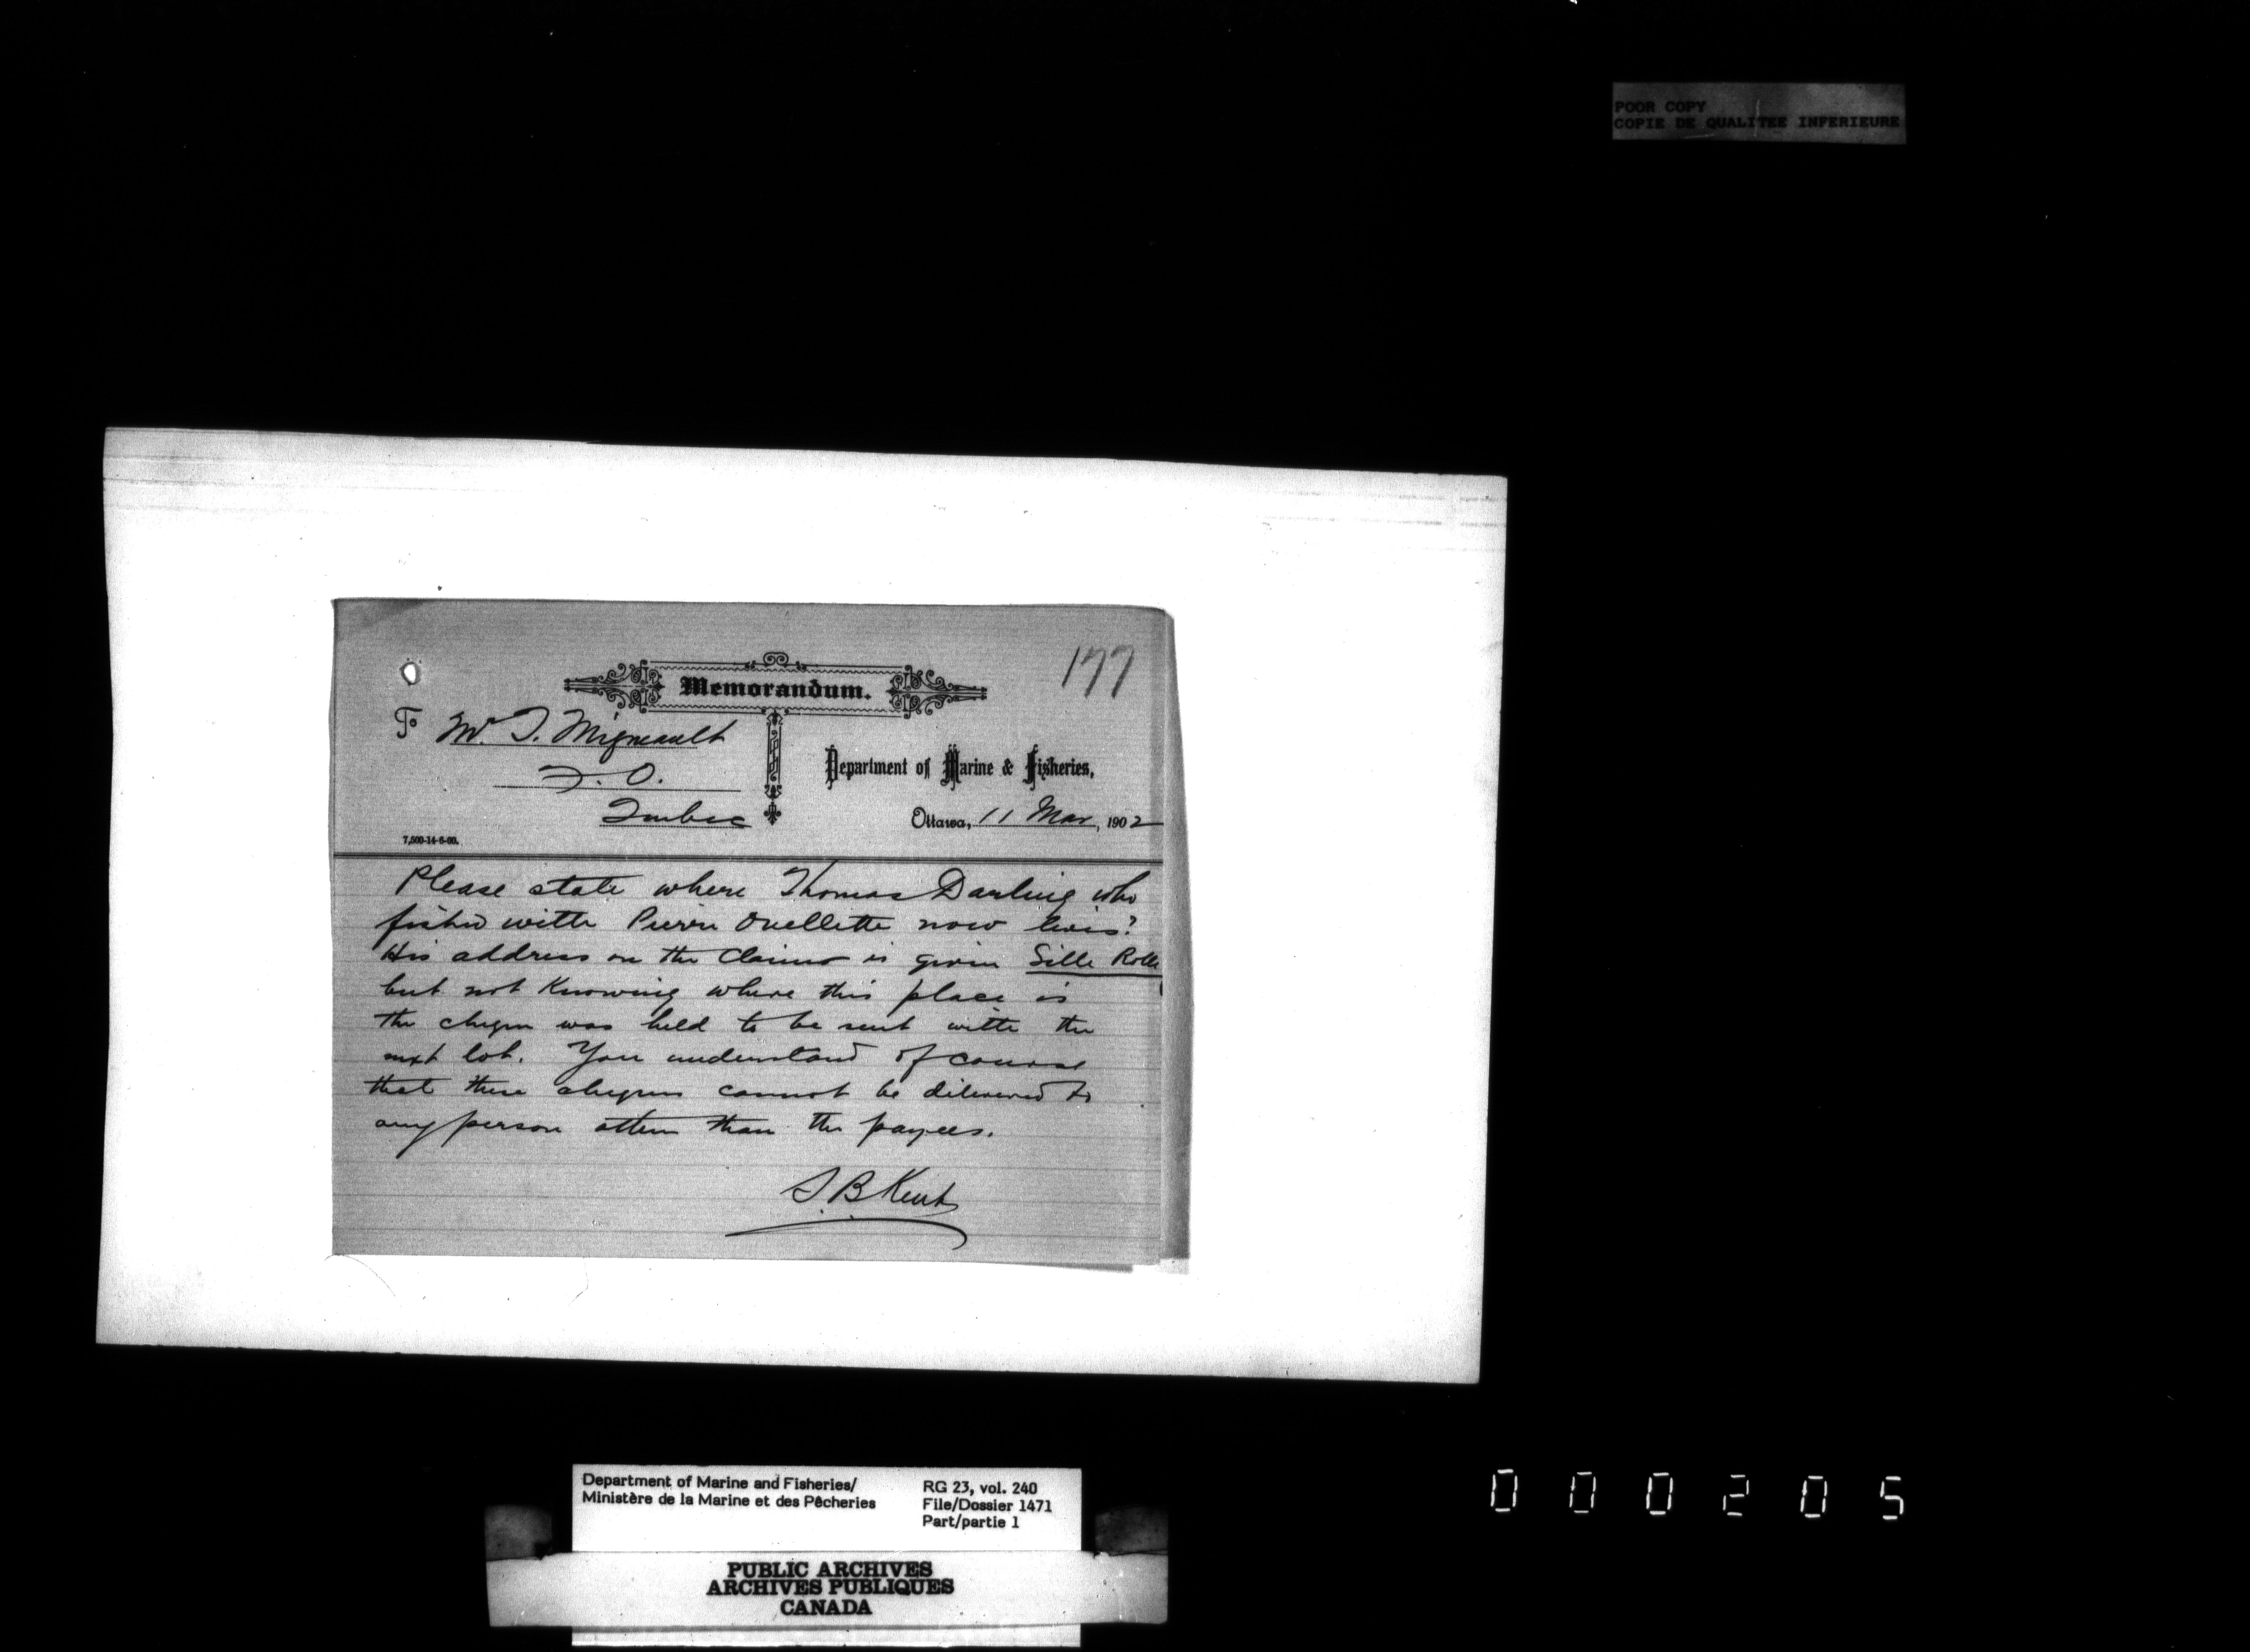 POOR COPY
COPIE DE QUALITEE INFERIEURE
177
Memorandum.
To Mr. T. Migneault
F. O.
Quebec
Department of Marine & Fisheries,
Ottawa, 11 Mar, 1902
7,500-14-6-00.
Please state where Thomas Darling who
fished with Pierre Ouellette now lives?
His address on the claims is given Sille Rolle
but not Knowing where this place is
the cheque was held to be sent with the
next lot. You understand of course
that these cheques cannot be delivered to
any person other than the payees.
S. B. Kent
Department of Marine and Fisheries/
Ministère de la Marine et des Pêcheries
RG 23, vol. 240
File/Dossier 1471
Part/partie 1
PUBLIC ARCHIVES
ARCHIVES PUBLIQUES
CANADA
000205